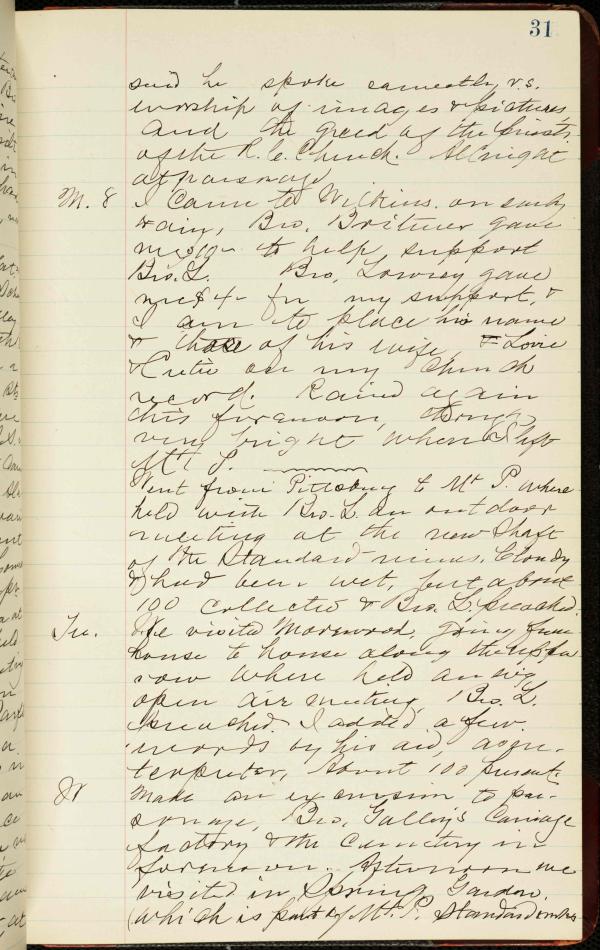 31
said he spoke earnestly v.s.
worship of images & pictures
and the greed of the priests
of the R. C. Church. All night
at parsonage
M. 8 I came to Wilkins. on early
train, Bro. gave
me $10- to help support
Bro. L. Bro. Lowrey gave
me $4- for my support, &
I am to place his name
& those of his wife, & Lovie
& on my church
record. Rained again
this forenoon, though
very bright when I left
Mt. P.
Went from Pittsburg to Mt P. where
held with Bro. L. an outdoor
meeting at the new Shaft
of the Standard mines. Cloudy
& had been wet, but about
100 collected & Bro. L. preached.
Tu. We visited Morewood, going from
house to house along the upper
row where held an
open air meeting, Bro. L.
preached. I added a few
words by his aid, as in-
terpreter, About 100 present.
W Made an excursion to par-
sonage, Bro. Carriage
factory & the Cemetery in
forenoon. Afternoon we
visited in Spring Garden,
(which is part of Mt. P. Standard